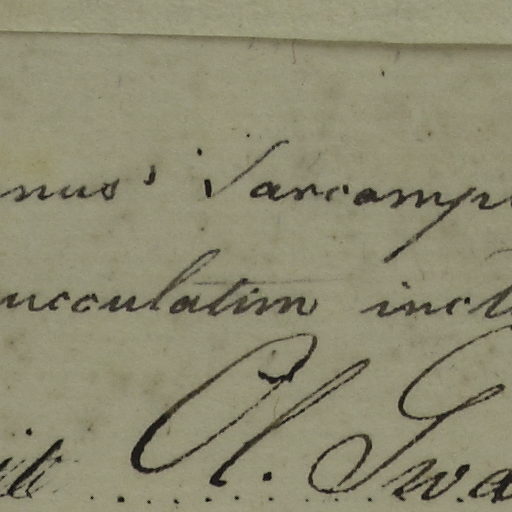 nus' Sarcamp
ucculatim inc
Ol. Swa